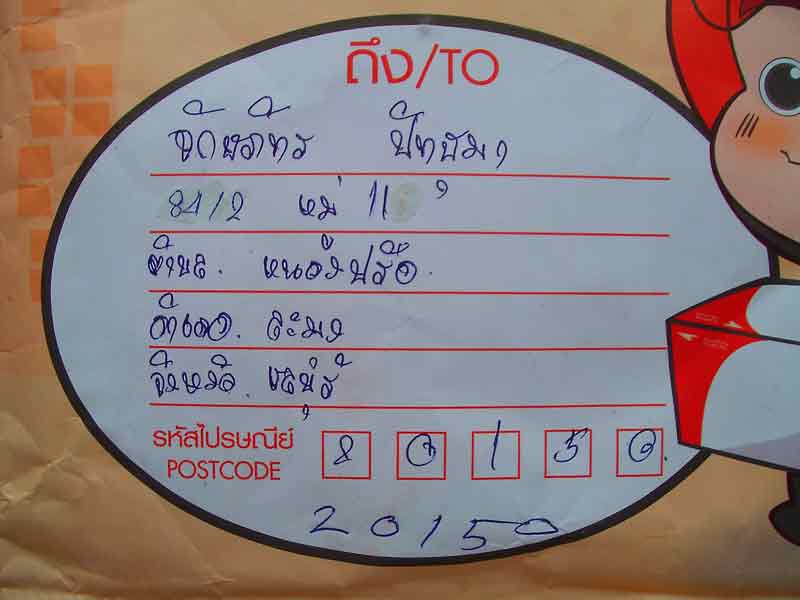 ถึง/TO
84/2 หมู่ 11
ตำบล. หนองปรือ.
อำเภอ. ละมุง
จังหวัด. ชลบุรี
รหัสไปรษณีย์
POSTCODE
8 0 1 5 0
20150